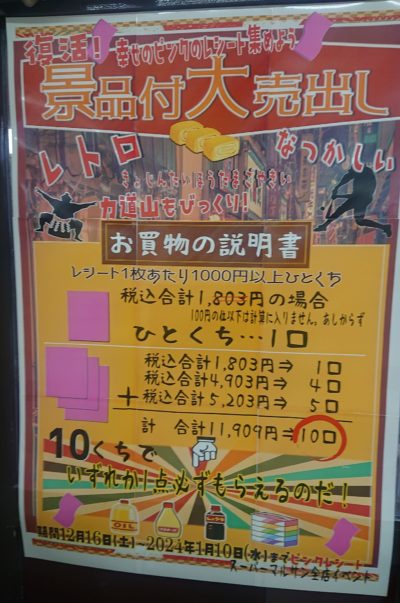 復活！
幸せのピンクのレシート集めよう
景品付大売出し
レトロ
なつかしい
きょじんたいほうたまごやきい
力道山もびっくり！
お買物の説明書
レシート1枚あたり1000円以上ひとくち
税込合計1,803円の場合
100円の位以下は計算に入りません。あしからず
ひとくち…1口
税込合計1,803円⇒ 1口
税込合計4,903円⇒ 4口
＋税込合計5,203円⇒ 5口
計 合計11,909円⇒10口
10くちで
いずれか1点必ずもらえるのだ！
OIL
期間12月16日(土)〜2024年1月10日(水)まで
ピンクレシート
スーパーマルサン全店イベント